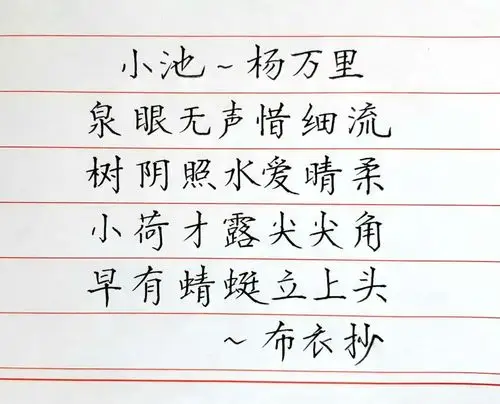 小池~杨万里
泉眼无声惜细流
树阴照水爱晴柔
小荷才露尖尖角
早有蜻蜓立上头
~布衣抄